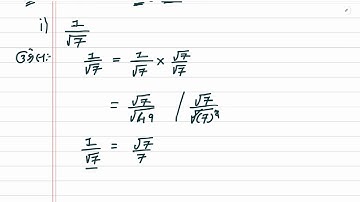 i) 1/√7
1/√7 = 1/√7 × √7/√7
= √7/√49 / √7/√(7)²
1/√7 = √7/7